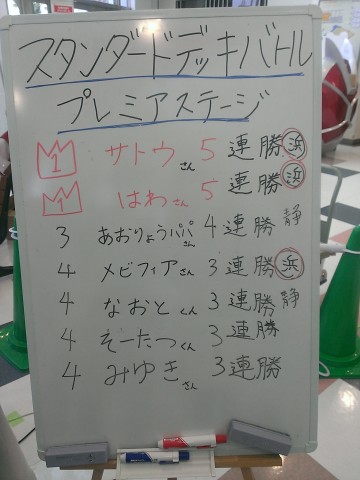 スタンダードデッキバトル
プレミアステージ
1 サトウさん 5連勝 浜
1 はわさん 5連勝 浜
3 あおりょうパパさん 4連勝 静
4 メビフィアさん 3連勝 浜
4 なおとくん 3連勝 静
4 そーたつくん 3連勝
4 みゆきさん 3連勝